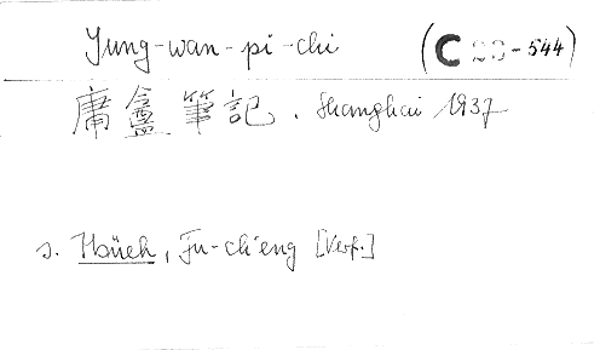 Yung-wan-pi-chi (C -544)
庸盦筆記. Shanghai 1937
s. Hsüeh, Fu-ch'eng [Verf.]